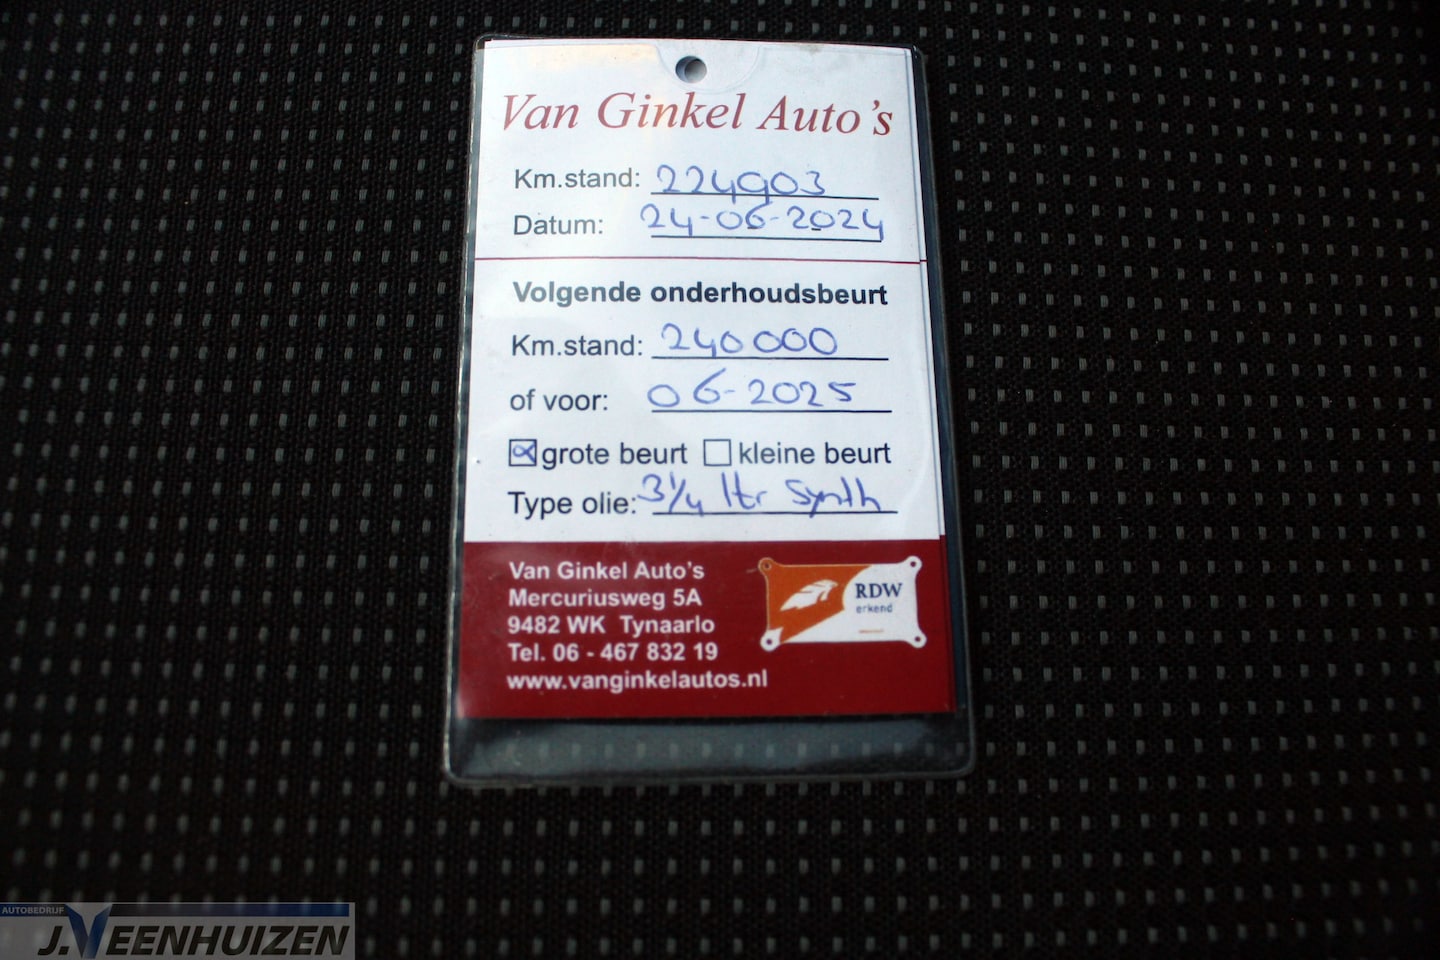 Van Ginkel Auto's
Km.stand: 224903
Datum: 24-06-2024
Volgende onderhoudsbeurt
Km.stand: 240000
of voor: 06-2025
grote beurt kleine beurt
Type olie: 3 1/4 ltr Synth
Van Ginkel Auto's
Mercuriusweg 5A
9482 WK Tynaarlo
Tel. 06 - 467 832 19
www.vanginkelautos.nl
RDW
erkend
AUTOBEDRIJF
J.VEENHUIZEN